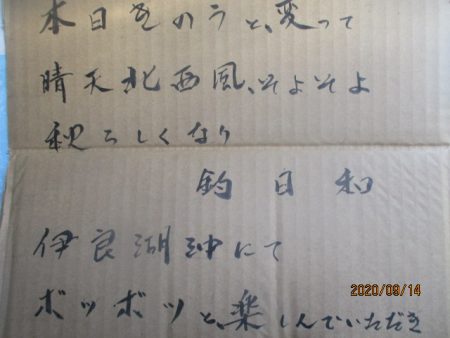 本日きのうと、変って
晴天北西風、そよそよ
秋らしくなり
釣日和
伊良湖沖にて
ボッボッと、楽しんでいただき
2020/09/14